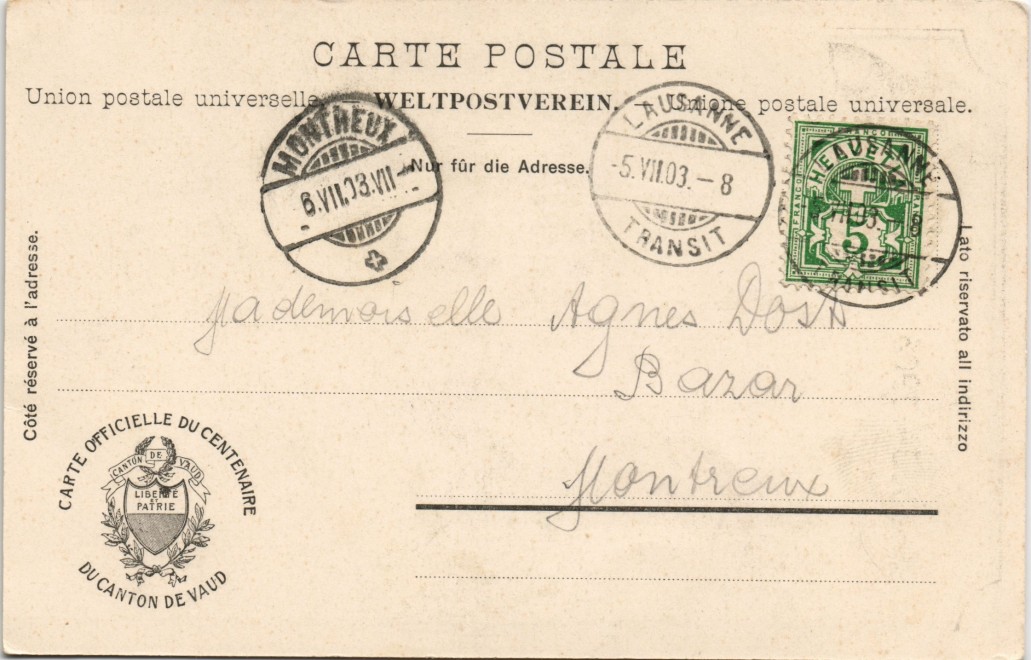 CARTE POSTALE
Union postale universelle. — WELTPOSTVEREIN. — Unione postale universale.
Nur für die Adresse.
MONTREUX
6.VII.03.VII-
LAUSANNE
-5.VII.03.-8
TRANSIT
FRANCO
HELVETIA
5
LAUSANNE
8
TRANSIT
Côté réservé à l'adresse.
Lato riservato all indirizzo
Mademoiselle Agnes Dost
Bazar
Montreux
CARTE OFFICIELLE DU CENTENAIRE
CANTON DE VAUD
LIBERTÉ
ET
PATRIE
DU CANTON DE VAUD